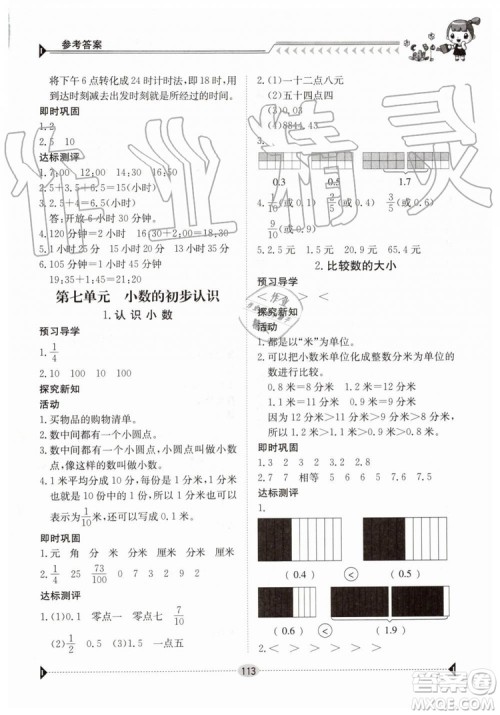 参考答案
将下午 6 点转化成 24 时计时法,即 18 时,用
到达时刻减去出发时刻就是所经过的时间。
即时巩固
1.2
2.5 10
达标测评
1.7:00 12:00 15:00 16:50
2.5:00+1:5=6:5(小时)
答:开放 6 小时 30 分钟。
4.120 分钟 16:30+2:00=18:30
5.1 小时 45 分=1:45(小时)
19:35+1:45=21:20
第七单元 小数的初步认识
1.认识小数
预习导学
1.1/4
探究新知
活动
1.买物品的购物清单。
2.数中间都有一个小圆点。
3.数中间都有一个小圆点,这个小圆点叫做小数
点,像这样的数叫做小数。
4.1 米平均分成 10 份,每份是 1 分米,1 分米可以
表示成 1/10 米,还可以写成 0.1 米。
即时巩固
1.元 角 分 米 分米 厘米 分米 厘米
2.1/4 25 73/100 0 7 3 0.73
达标测评
1.(1)0.1 零点一 零点七 7/10
(2)1/2 0.5 一点五 1.5
2.(1)一十二点八元
(2)五十四点四
(3)8844.43
3.
0.3 0.5 1.7
4. (或 0.1) (或 0.6) (或 0.9)
5.2.5 元 1.20 元 65.4 元
2.比较数的大小
预习导学
> < < >
探究新知
活动
1.都是以“米”为单位。
2.可以把小数米单位化成整数分米为单位的
数进行比较。
0.8 米=8 分米 1.2 米=12 分米
1.1 米=11 分米 0.9 米=9 分米
因为 12 分米>11 分米>9 分米>8 分米
所以 1.2 米>1.1 米>0.9 米>0.8 米
即时巩固
1.3 2 3.2 > 2.3
2.7 7 相等 5 6 < 5.7 < 6.2
达标测评
1.
(0.4) < (0.5)
(0.6) < (1.9)
2.> < > <
113